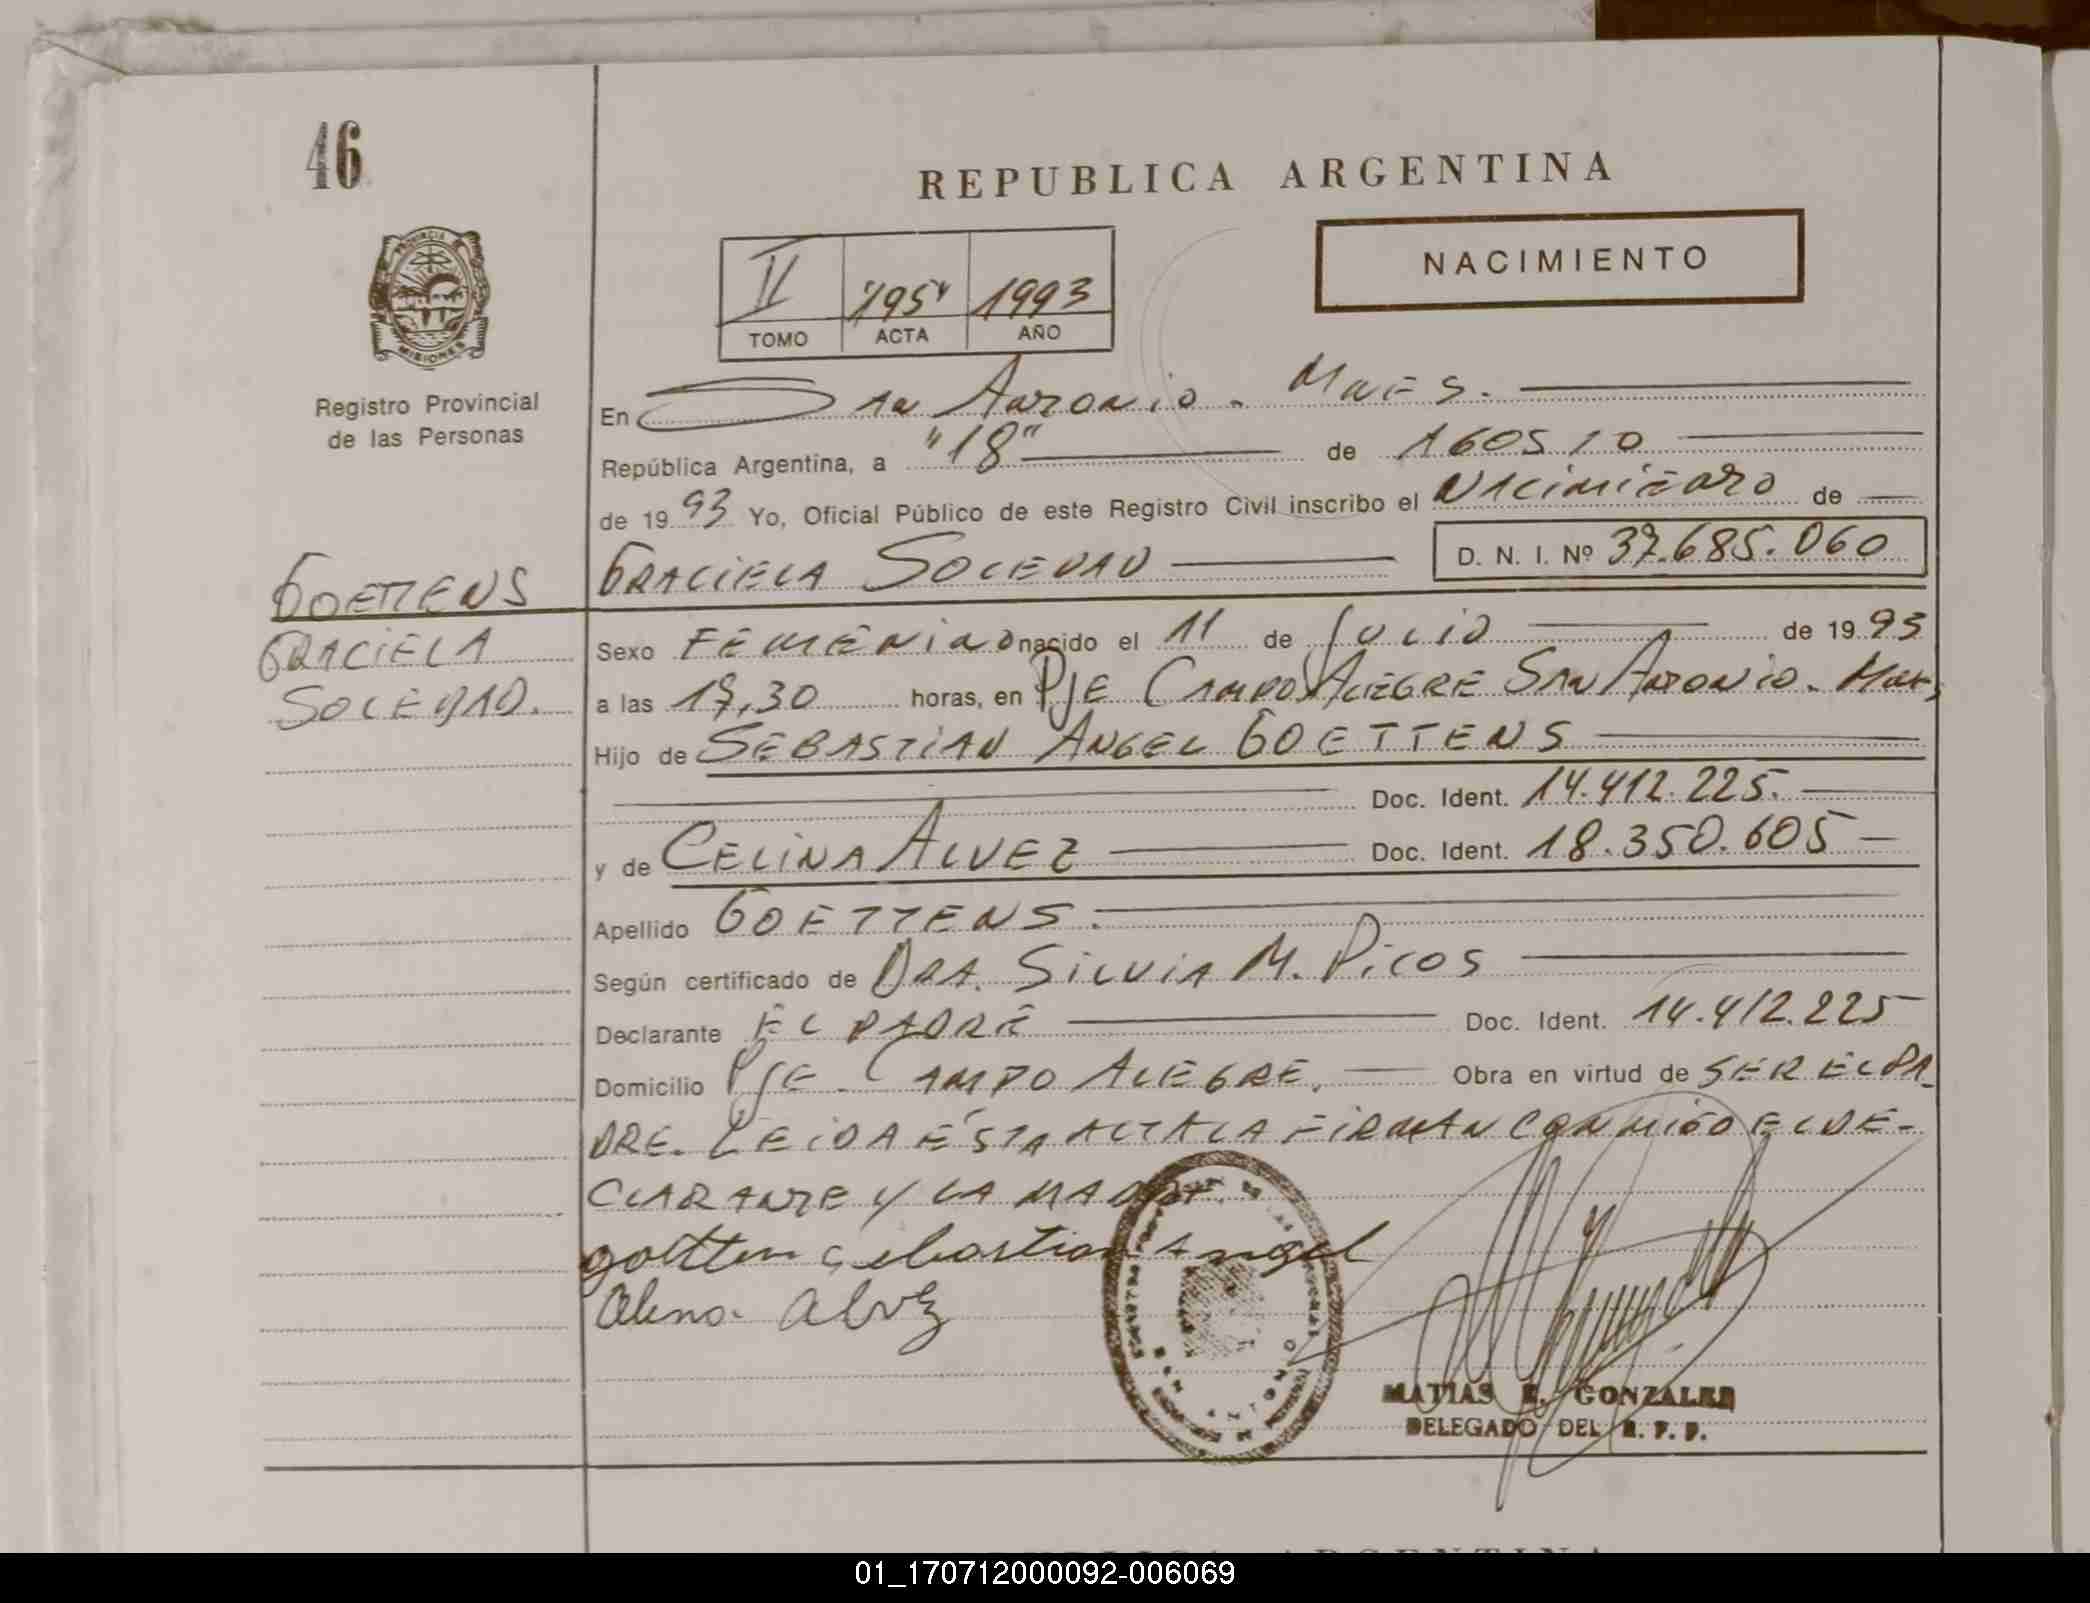 46
REPUBLICA ARGENTINA
NACIMIENTO
II "195" 1993
TOMO ACTA AÑO
PROVINCIA DE
MISIONES
Registro Provincial
de las Personas
En San Antonio - Mnes.
República Argentina, a "18" de Agosto
de 1993 Yo, Oficial Público de este Registro Civil inscribo el Nacimiento de
GOETTENS
GRACIELA SOLEDAD D. N. I. Nº 37.685.060
GRACIELA
SOLEDAD.
Sexo FEMENINO nacido el 11 de Julio de 1993
a las 17,30 horas, en Pje CAMPO ALEGRE SAN ANTONIO - Mnes
Hijo de SEBASTIAN ANGEL GOETTENS
Doc. Ident. 14.412.225.
y de CELINA ALVEZ Doc. Ident. 18.350.605
Apellido GOETTENS.
Según certificado de DRA. SILVIA M. PICOS
Declarante EL PADRE Doc. Ident. 14.412.225
Domicilio PJE. CAMPO ALEGRE. Obra en virtud de SER EL PA-
DRE. LEIDA ÉSTA ACTA LA FIRMAN CONMIGO EL DE-
CLARANTE Y LA MADRE.
goetten sebastian Angel
Alvez
SAN ANTONIO
MATIAS E. GONZALEZ
DELEGADO DEL R. P. P.
REPUBLICA ARGENTINA
01_170712000092-006069